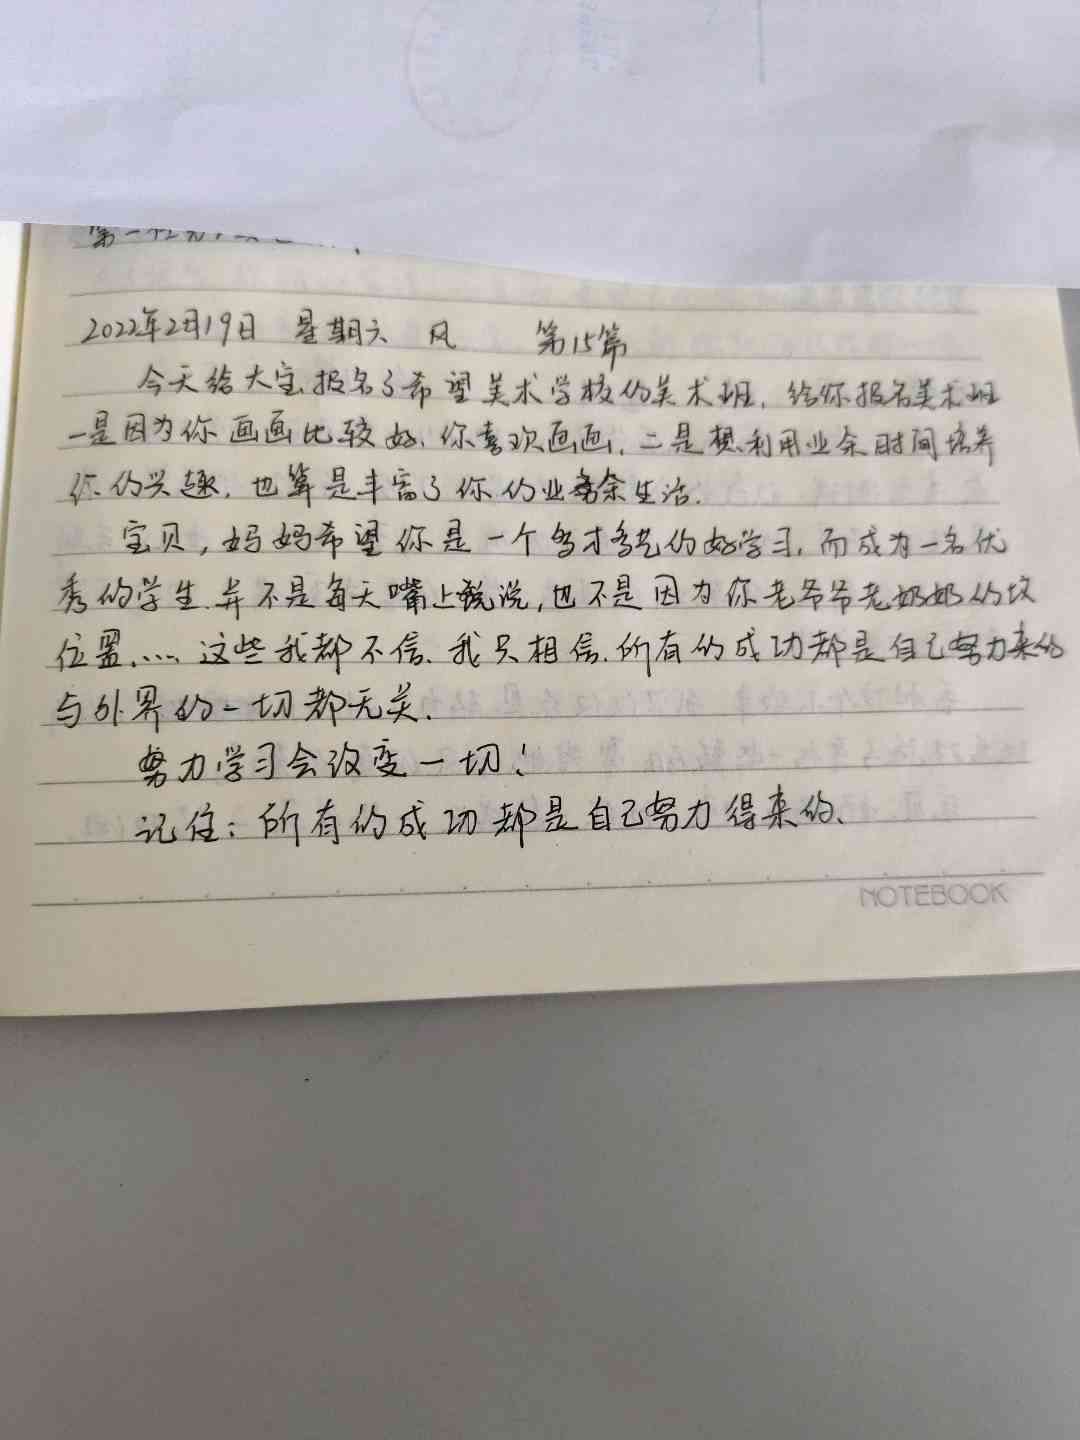 2022年2月19日 星期六 风 第15篇
今天给大宝报名了希望美术学校的美术班，给你报名美术班
一是因为你画画比较好、你喜欢画画，二是想利用业余时间培养
你的兴趣，也算是丰富了你的业余生活.
宝贝，妈妈希望你是一个多才多艺的好学习，而成为一名优
秀的学生.并不是每天嘴上说说，也不是因为你老爷爷老奶奶的坟
位置、… 这些我都不信.我只相信.所有的成功都是自己努力来的
与外界的一切都无关.
努力学习会改变一切！
记住：所有的成功都是自己努力得来的、
NOTEBOOK